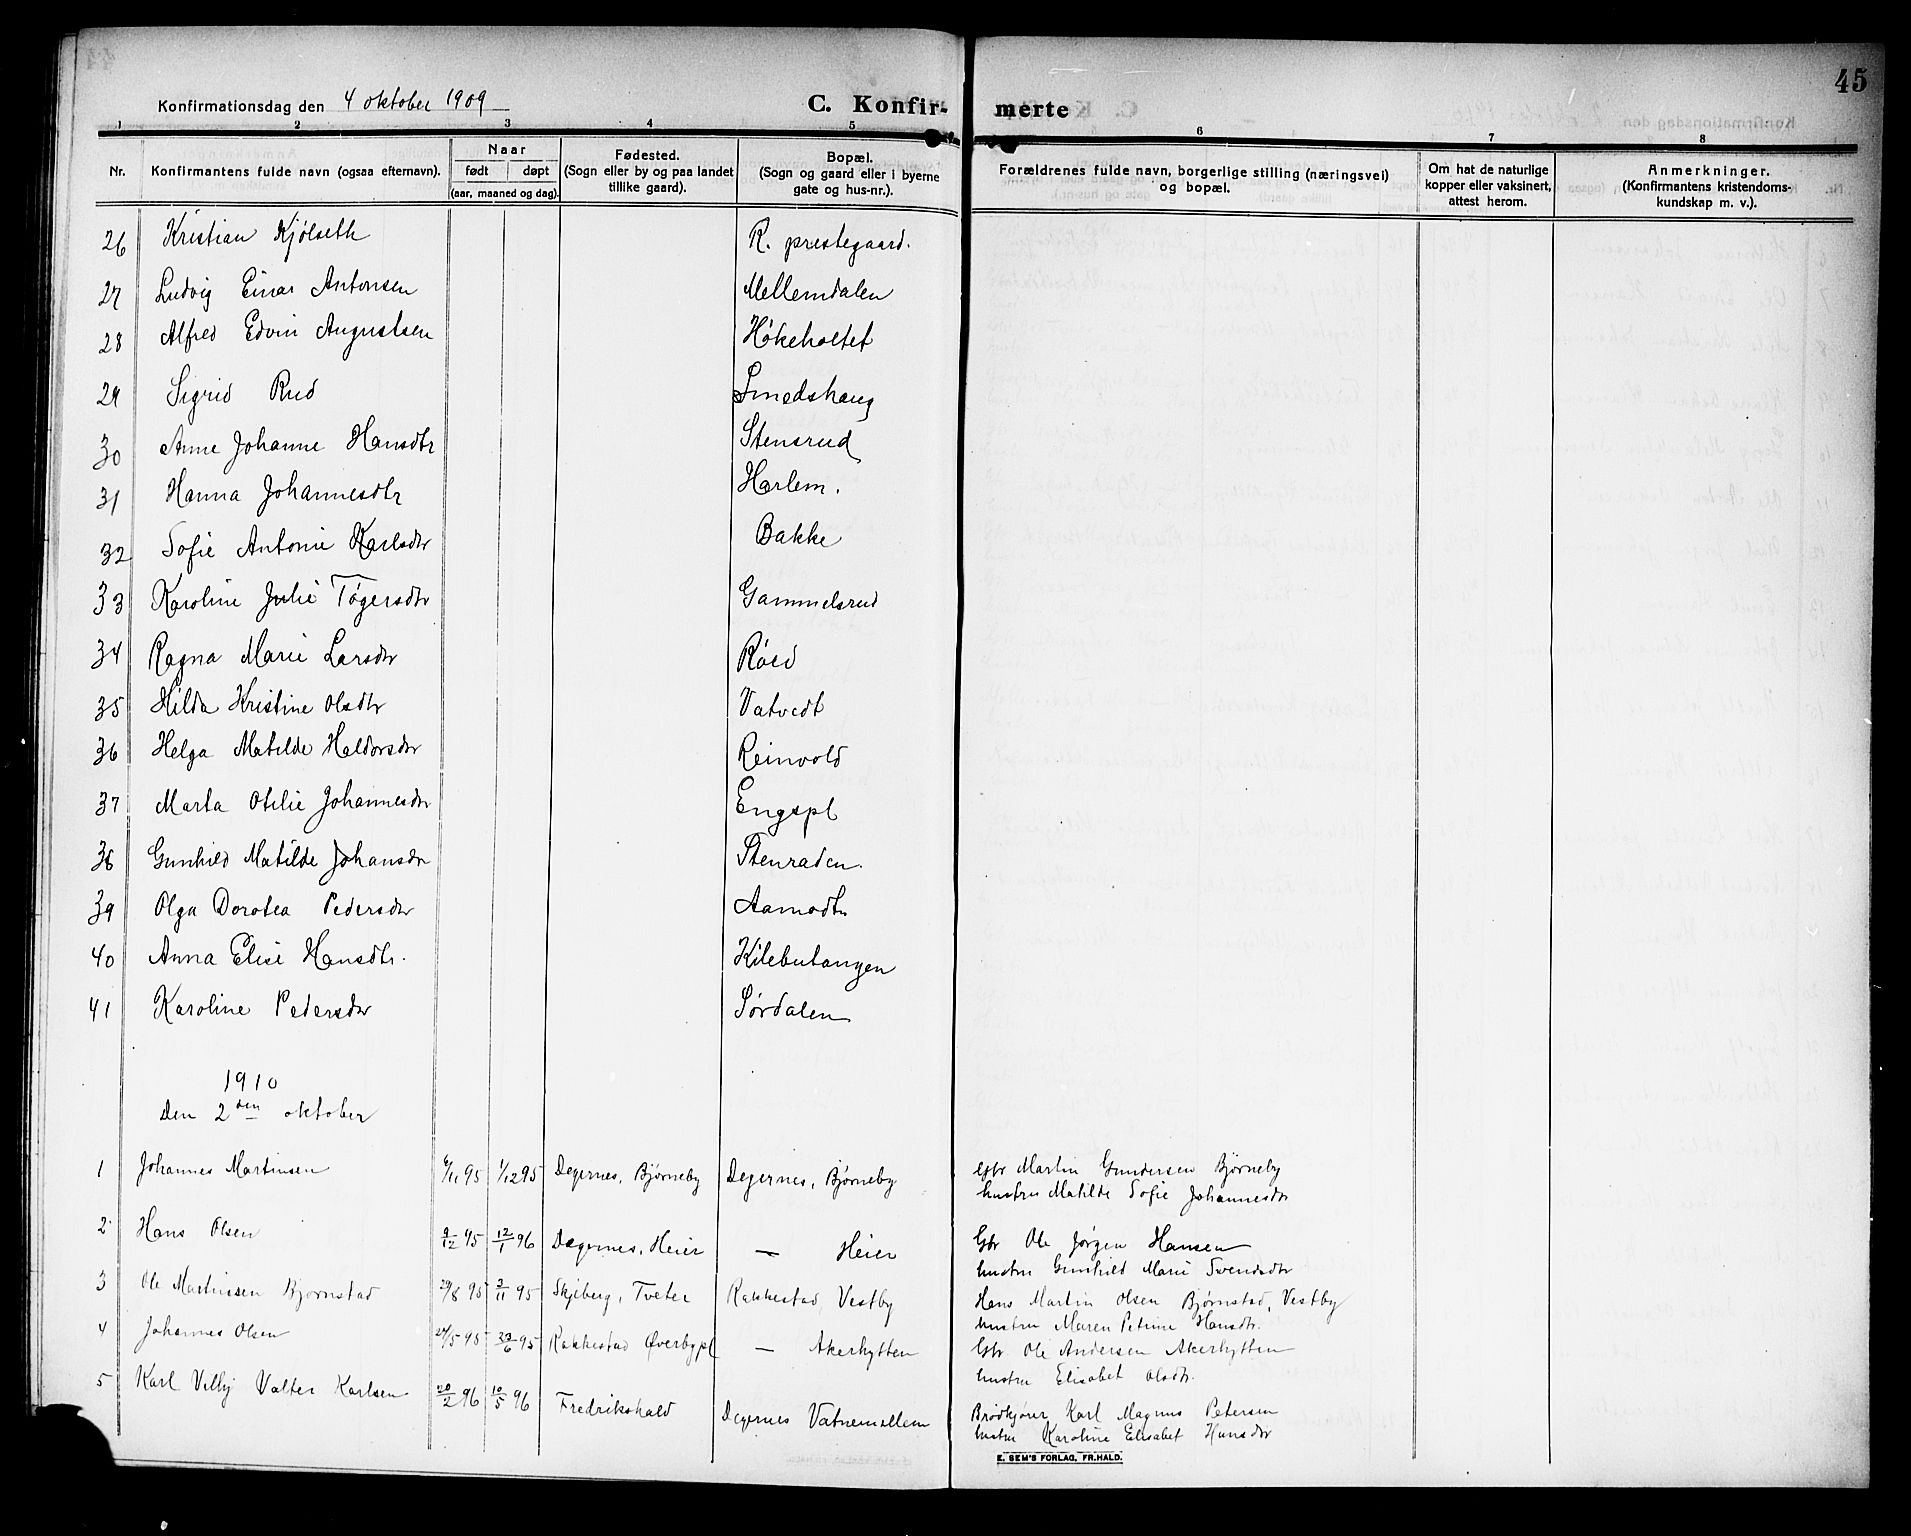 45
Konfirmationsdag den 4 oktober 1909
C. Konfir- merte
1 2 3 4 5 6 7 8
Nr.
Konfirmantens fulde navn (ogsaa efternavn).
Naar
født døpt
(aar, maaned og dag).
Fødested.
(Sogn eller by og paa landet
tillike gaard).
Bopæl.
(Sogn og gaard eller i byerne
gate og hus-nr.).
Forældrenes fulde navn, borgerlige stilling (næringsvei)
og bopæl.
Om hat de naturlige
kopper eller vaksinert,
attest herom.
Anmerkninger.
(Konfirmantens kristendoms-
kundskap m. v.).
26 Kristian Kjølseth R. prestegaard.
27 Ludvig Einar Antonsen Mellemdalen
28 Alfred Edvin Augustsen Høkeholtet
29 Sigrid Rud Smedshaug
30 Anne Johanne Hansdtr Stensrud
31 Hanna Johannesdtr Harlem.
32 Sofie Antonie Karlsdtr Bakke
33 Karoline Julie Tøgersdtr Gammelsrud
34 Ragna Marie Larsdtr Røed
35 Hilda Kristine Olsdtr Vatvedt
36 Helga Matilde Haldorsdtr Reinvold
37 Marta Otilie Johannesdtr Engspl
38 Gunhild Matilde Johansdtr Stenraden.
39 Olga Dorotea Pedersdtr Aamodt
40 Anna Elise Hansdtr. Kilebutangen
41 Karoline Pedersdtr Sørdalen
1910
Den 2den oktober
1 Johannes Martinsen 6/11 95 1/12 95 Degernes, Bjørneby Degernes, Bjørneby Gbr Martin Gundersen Bjørneby
hustru Matilde Sofie Johannesdtr
2 Hans Olsen 9/12 95 12/1 96 Degernes, Heier — Heier Gbr Ole Jørgen Hansen
hustru Gunhild Marie Svendsdtr
3 Ole Martinsen Bjørnstad 29/8 95 3/11 95 Skjeberg, Tveter Rakkestad, Vestby Hans Martin Olsen Bjørnstad, Vestby
hustru Maren Petrine Hansdtr.
4 Johannes Olsen 24/5 95 23/6 95 Rakkestad Øverbypl — Akerhytten Gbr Ole Andersen Akerhytten
hustru Elisabet Olsdtr.
5 Karl Villy Valter Karlsen 20/2 96 10/5 96 Fredrikshald Degernes Vatnemellem Brødkjører Karl Magnus Petersen
hustru Karoline Elisabet Hansdtr
E. SEM'S FORLAG, FR.HALD.